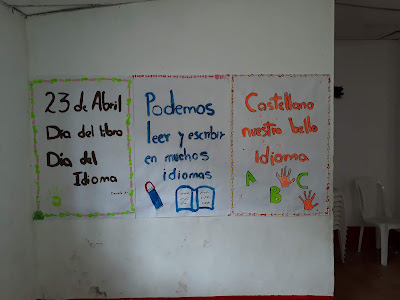 23 de Abril
Dia del libro
Dia del
Idioma
Podemos
leer y escribir
en muchos
idiomas
Castellano
nuestro bello
idioma
A B C